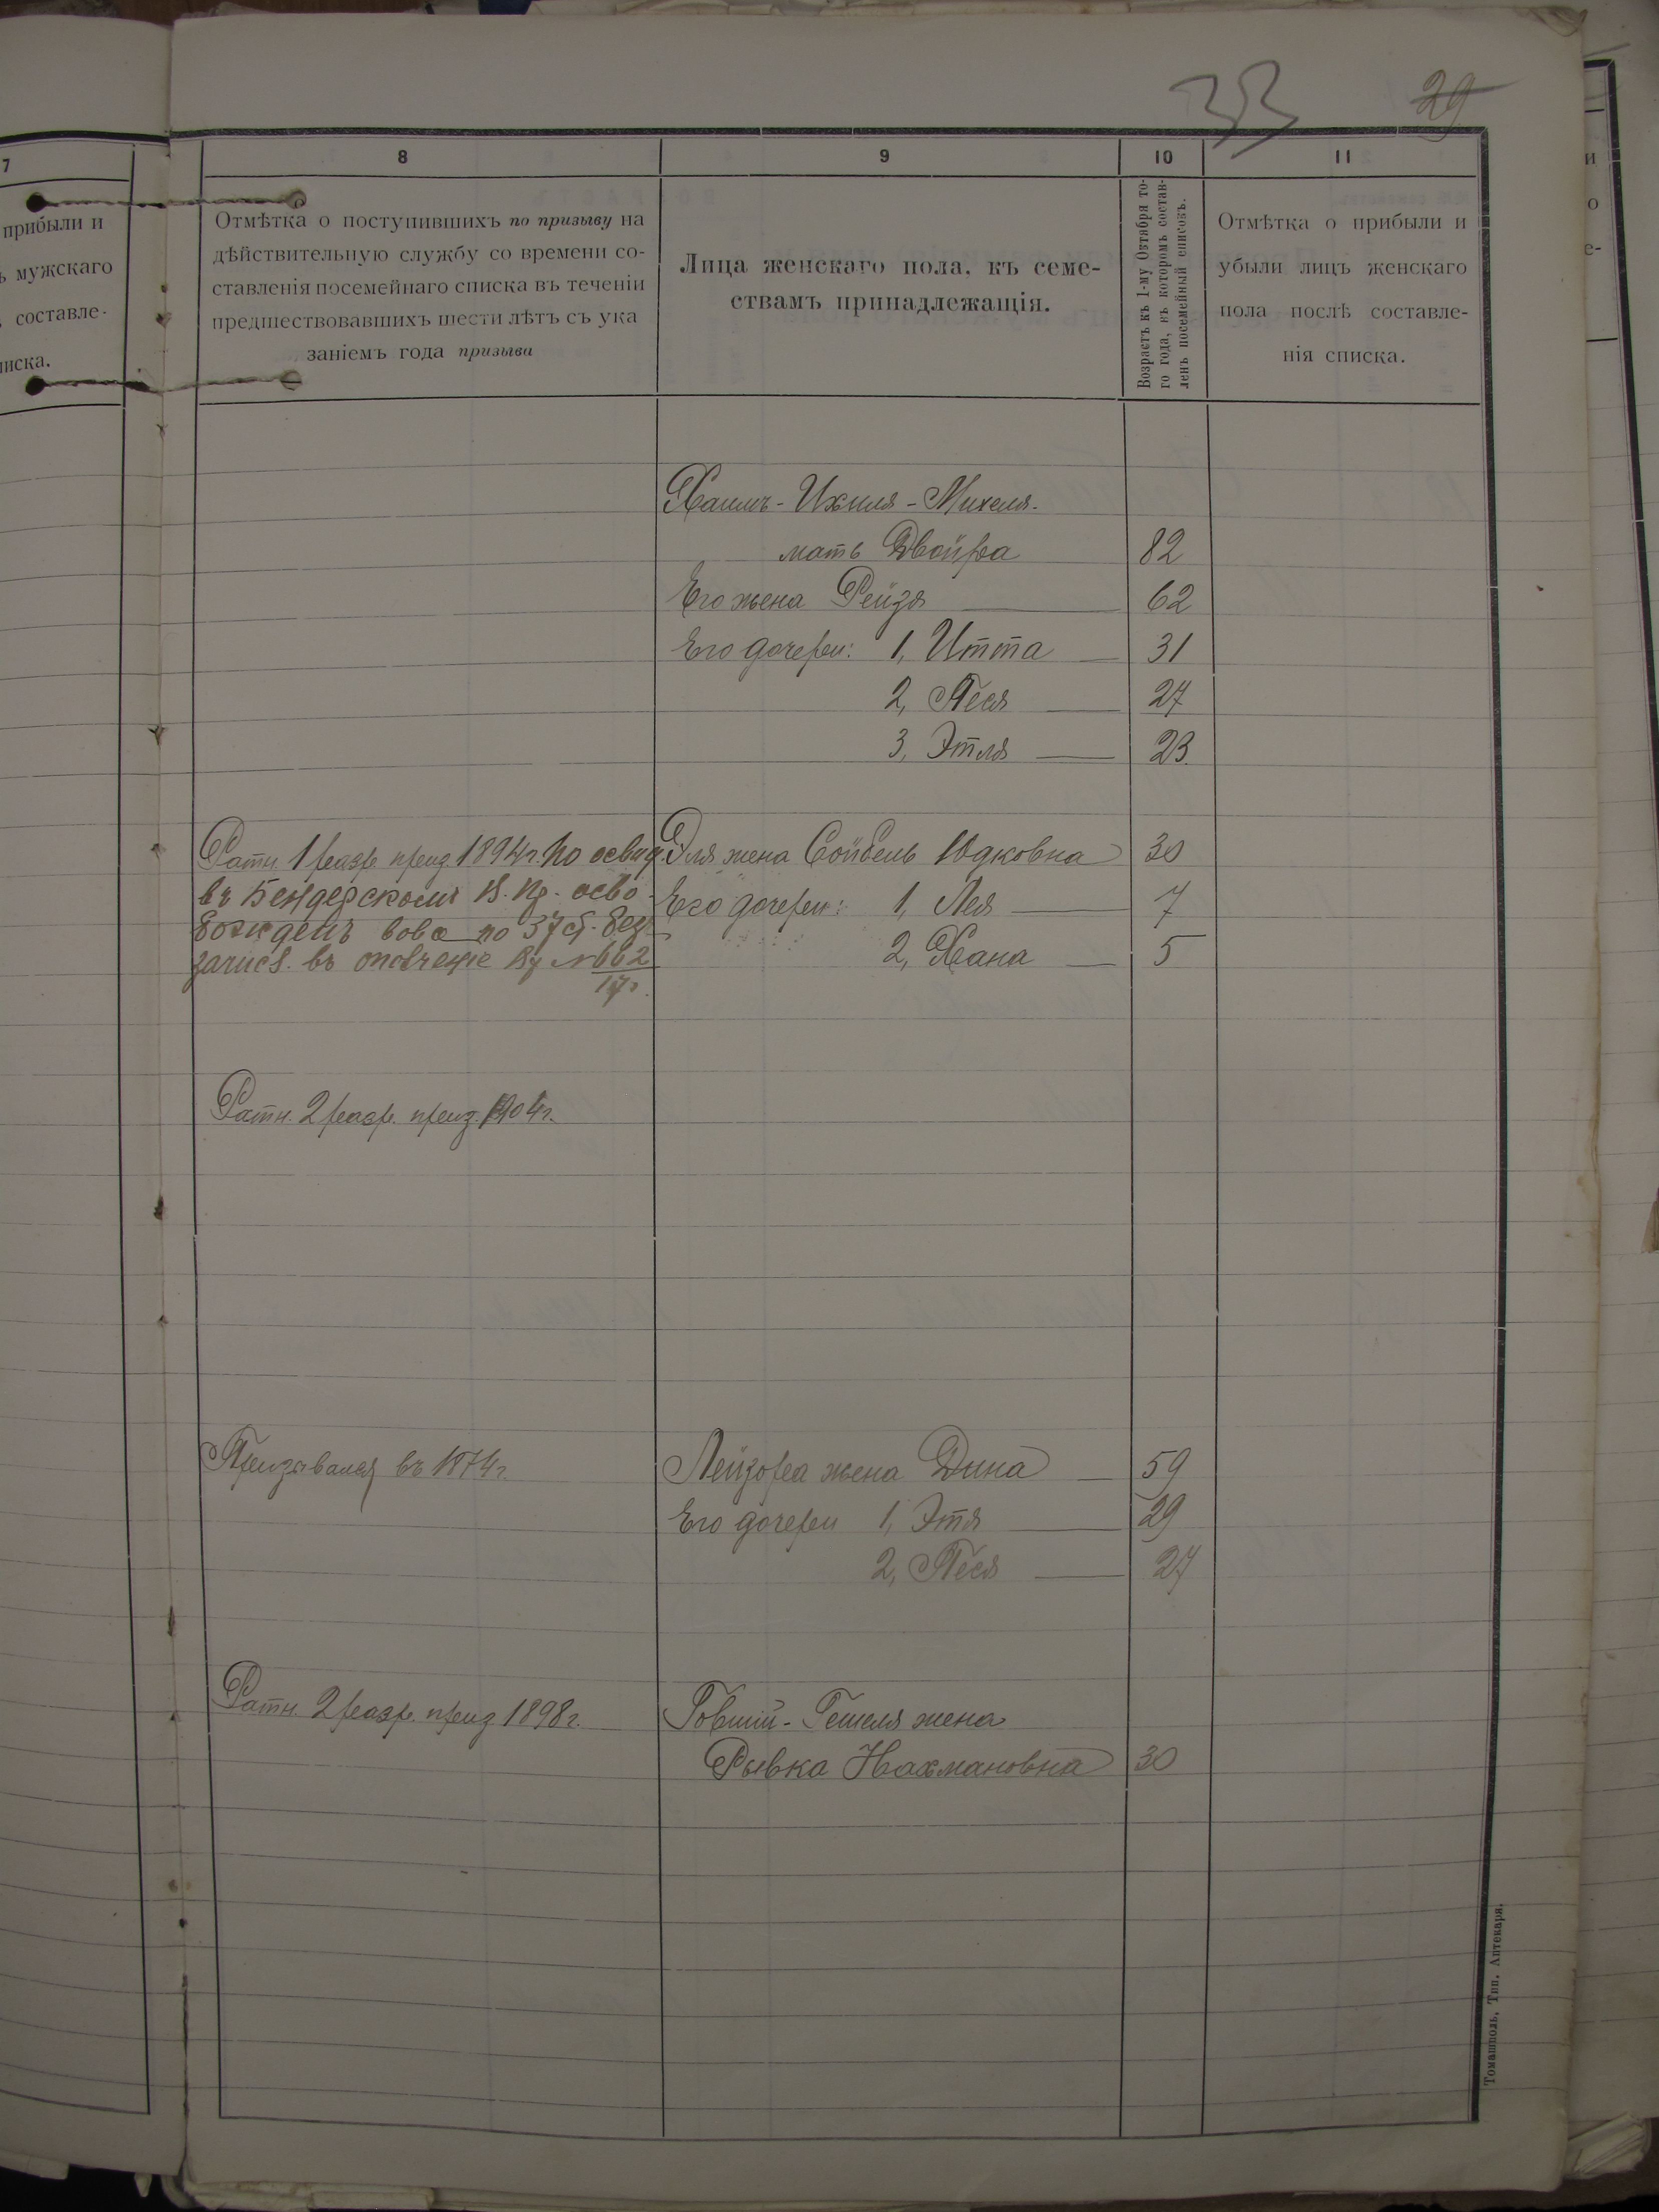 33 29
7
прибыли и
ъ мужскаго
составле-
писка.
8
9
10
11
Отмѣтка о поступившихъ по призыву на
дѣйствительную службу со времени со-
ставленія посемейнаго списка въ теченіи
предшествовавшихъ шести лѣтъ съ ука
заніемъ года призыва
Лица женскаго пола, къ семе-
ствамъ принадлежащія.
Возрастъ къ 1-му Октября то-
го года, въ которомъ состав-
ленъ посемейный списокъ.
Отмѣтка о прибыли и
убыли лицъ женскаго
пола послѣ составле-
нія списка.
Хаимъ-Ихиля-Михеля.
мать Двойра 82
Его жена Рейзя 62
Его дочери: 1, Итта 31
2, Песя 27
3, Этля 23.
Ратн. 1 разр. приз 1894г. По освид.
въ Бендерскомъ В. Пр. осво
божденъ вовсе по 37 ст. без
зачисл. въ ополченіе Ву №662
17г.
Эля жена Сойбель Юдковна 30
Его дочери: 1, Лея 7
2, Хана 5
Ратн. 2 разр. приз. 1904г.
Призывался въ 1874г.
Лейзора жена Дина 59
Его дочери 1, Этя 29
2, Песя 27
Ратн. 2 разр. приз 1898г.
Говшій-Гешеля жена
Рывка Нахмановна 30
Томашполь, Тип. Аптекаря.